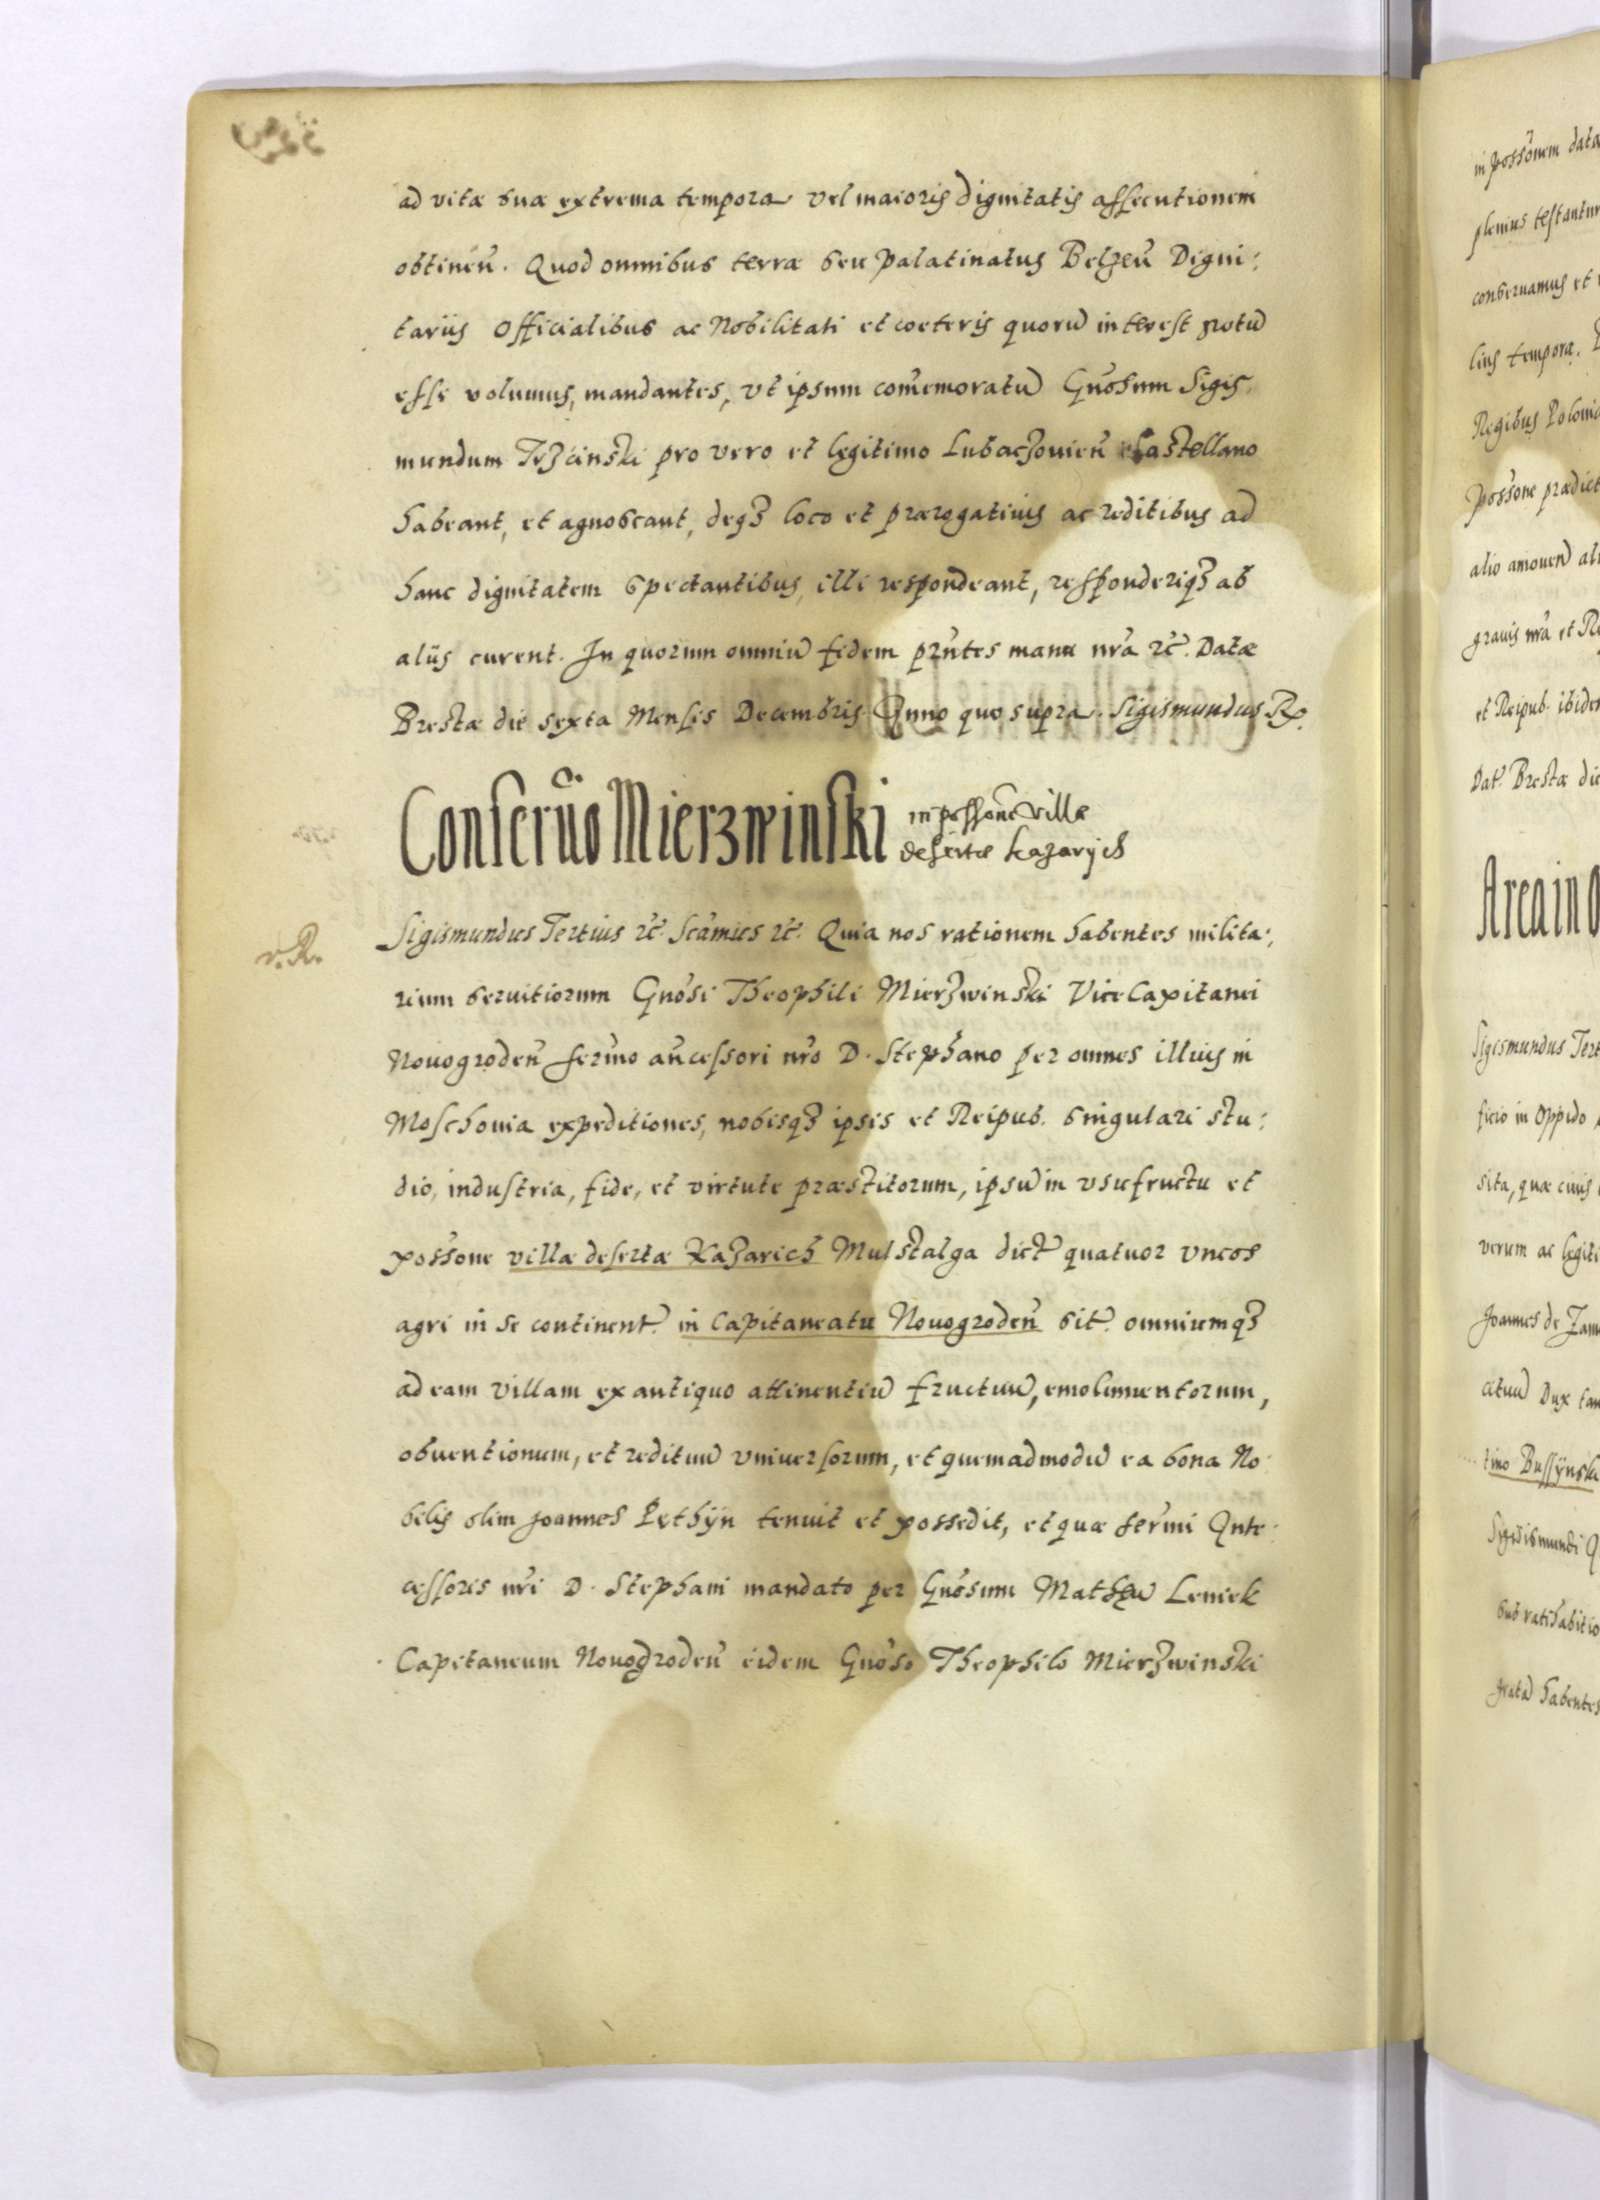 ad vitæ suæ extrema tempora vel maioris dignitatis assecutionem
obtineñ. Quod omnibus terræ seu palatinatus Belzeñ Digni:
tariis Officialibus ac Nobilitati et cœteris quorū interest notū
esse volumus, mandantes, vt ipsum com̃emoratū Gñosum Sigis,
mundum Tęzcinski pro vero et legitimo Lubaczouieñ Castellano
habeant, et agnoscant, deq3 loco et prærogatiuis ac reditibus ad
hanc dignitatem spectantibus, illi respondeant, responderiq3 ab
aliis curent. In quorum omniū fidem prñtes manu nrã rč. Datæ
Brestæ die sexta Mensis Decembris Anno quo supra. Sigismundus Rx.
Conseruõ Mierzwinski in possone villæ
desertæ kazarijch
v. R.
Sigismundus Tertius rč. Scãmus rč. Quia nos rationem habentes milita:,
rium seruitiorum Gnõsi Theophili Mierzwinski Vice Capitanei
Nouogrodeñ serm̃o añcessori nrõ D. Stephano per omnes illius in
Moschouia expeditiones, nobisq3 ipsis et Reipub. singulari stu:
dio, industria, fide, et virtute præstitorum, ipsū in vsufructu et
possõne villæ desertæ Kazarich Mulstalga dict̃ quatuor vncos
agri in se continent̃. in Capitaneatu Nouogrodeñ sit̃. omniumq3
ad eam villam ex antiquo attinentiū fructuū, emolumentorum,
obuentionum, et redituū vniuersorum, et quemadmodū ea bona No
bilis olim Joannes Pethÿn tenuit et possedit, et quæ serm̃i Ante
cessoris nrĩ D. Stephani mandato per Gnõsum Mathęū Leniek
Capitaneum Nouogrodeñ eidem Gnõso Theophilo Mierzwinski
in possõnem data
plenius testantur
conseruamus et
lius tempora.
Regibus Poloniæ
possõne prædict
alio amouend̃
grauis nrã et
et Reipub. ibidem
Dat̃ Brestæ die
Area in O
Sigismundus Tert
ficio in Oppido
sita, quæ cuius
verum ac legiti
Joannes de Zam
Dux
timo Bussÿnski
Sigisismundi
sub ratihabitio
gratā habentes